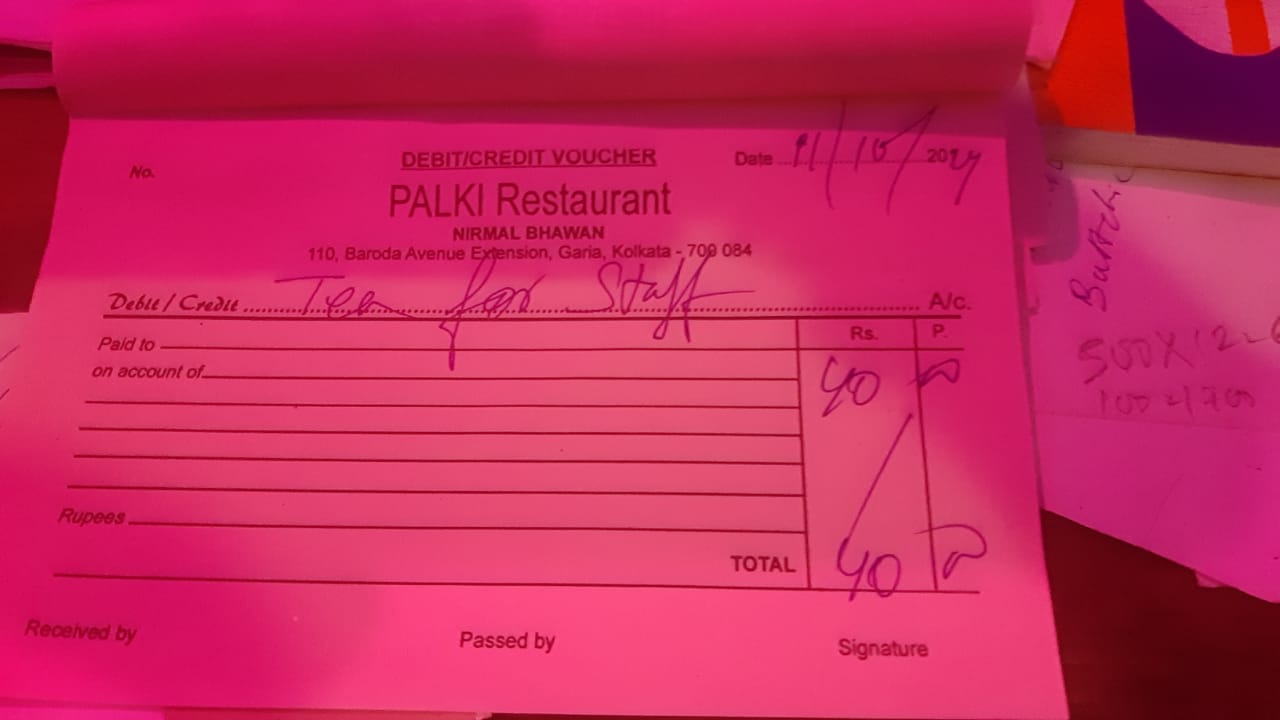 DEBIT/CREDIT VOUCHER
No.
Date 11/10/2024
PALKI Restaurant
NIRMAL BHAWAN
110, Baroda Avenue Extension, Garia, Kolkata - 700 084
Debit / Credit Tea for Staff A/c.
Rs. P.
Paid to
on account of
40 00
Rupees
TOTAL 40 00
Received by Passed by Signature
500X12=